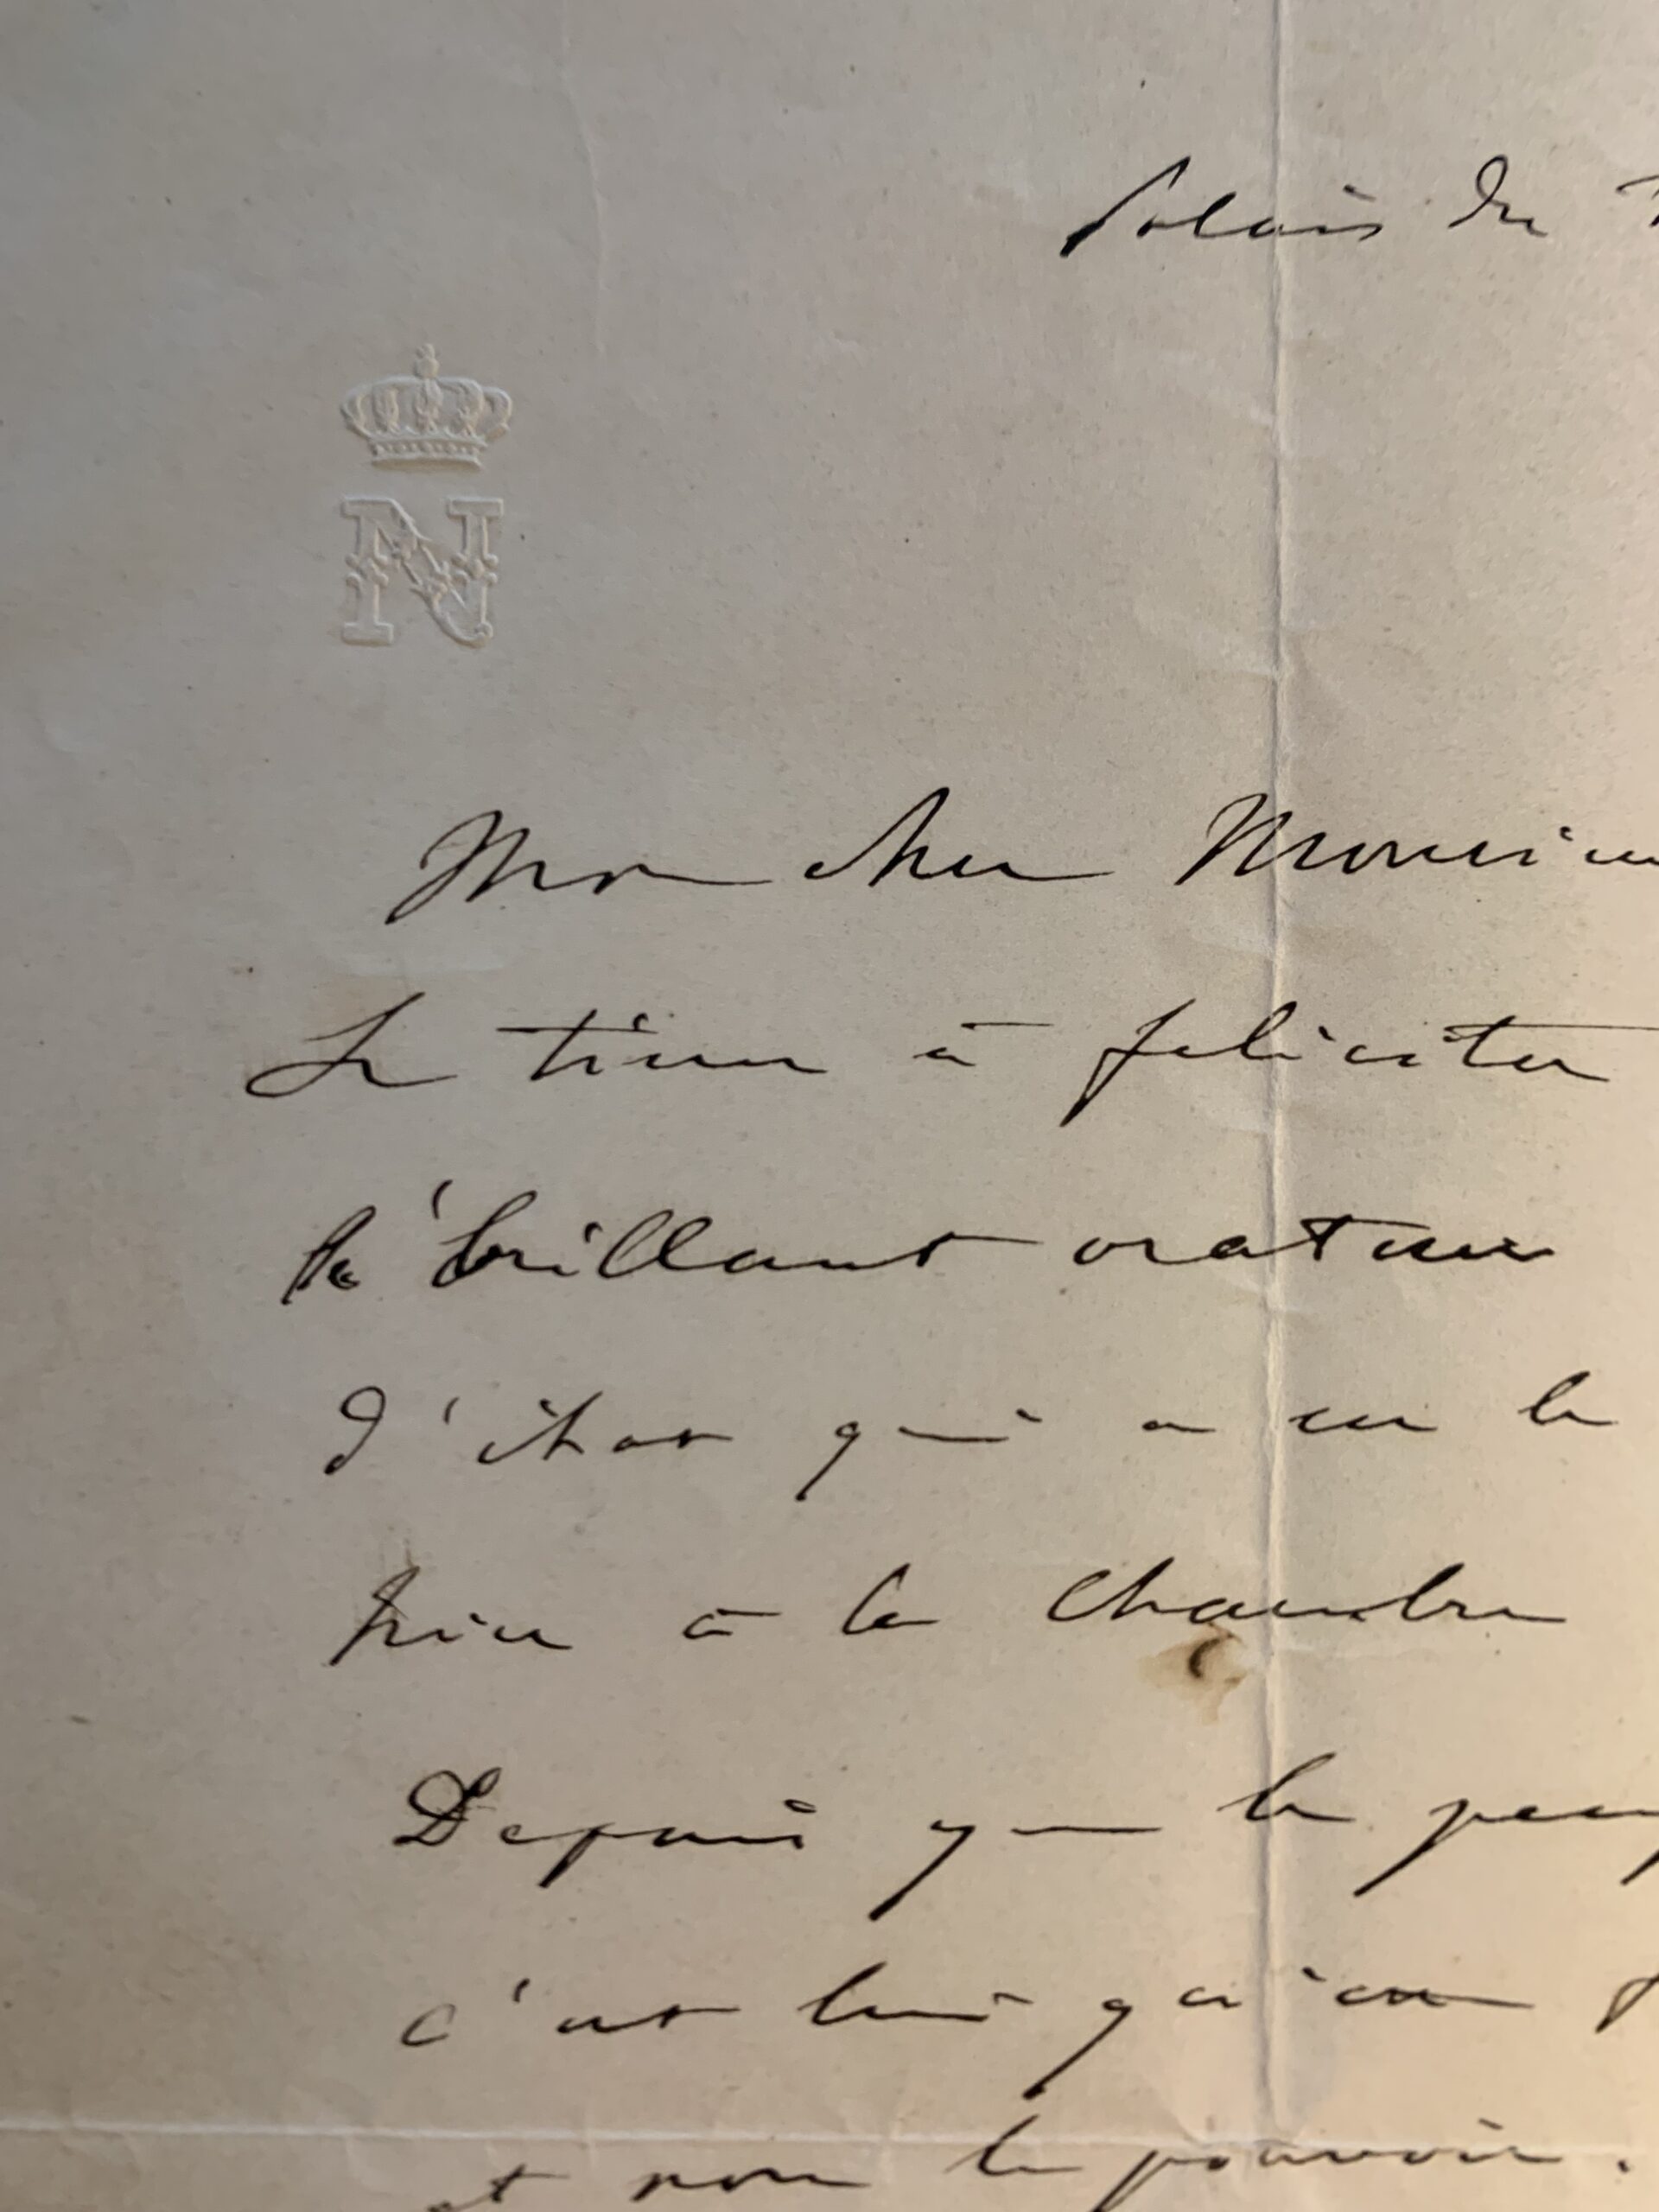 Palais du
N
Mon cher Monsieu
Je tiens à feliciter
le brillant orateur
d'état qui a eu le
hier à la Chambre
Depuis que le peup
c'est lui qu'on f
et non le pouvoir.